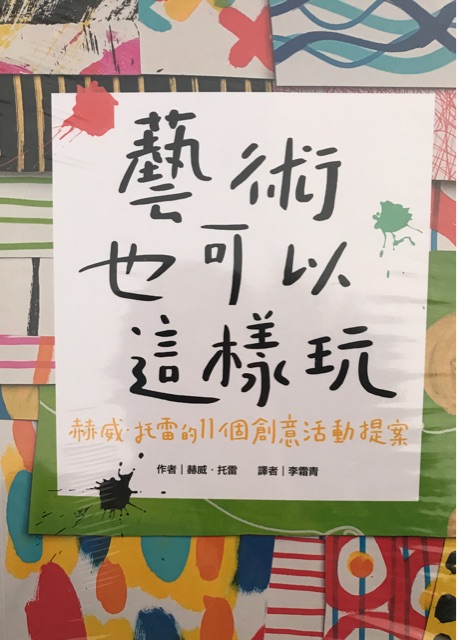 藝術
也可以
這樣玩
赫威·托雷的11個創意活動提案
作者｜赫威·托雷 譯者｜李霜青